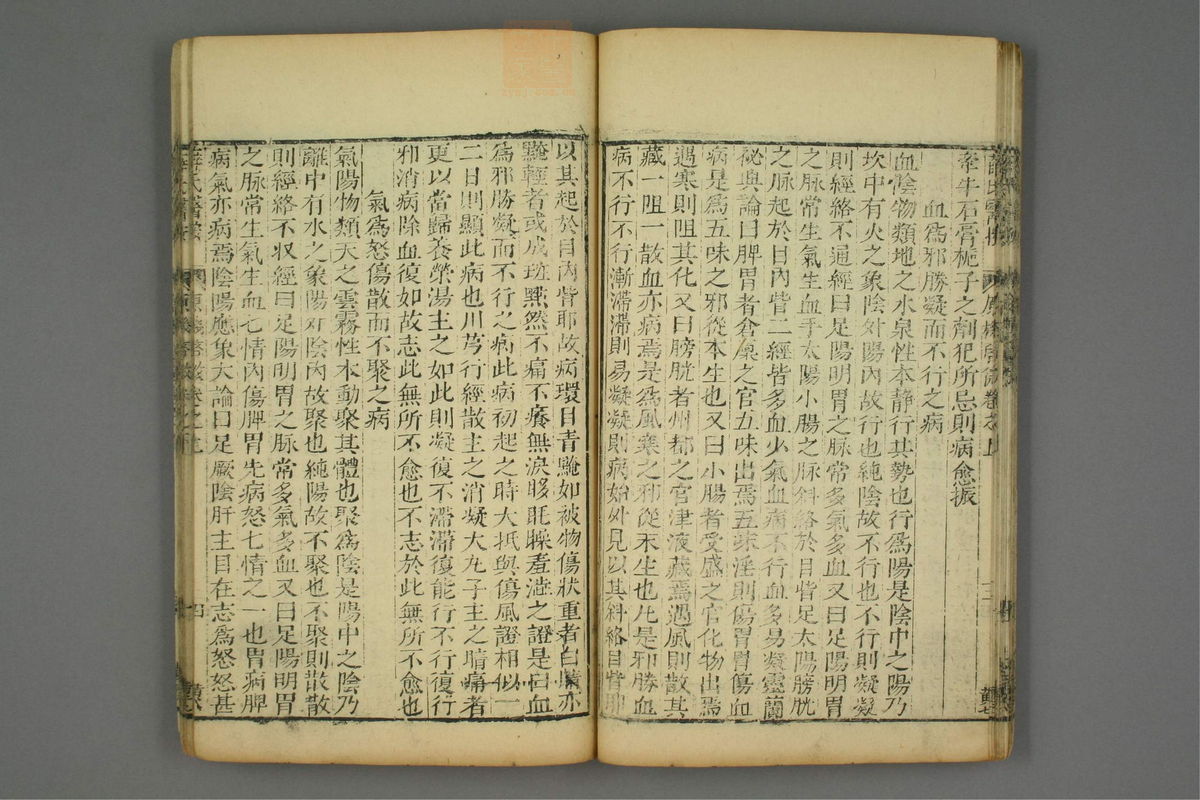 牽牛石膏梔子之劑犯所忌則病愈振
血爲邪勝凝而不行之病
血陰物類地之水泉性本靜行其勢也行爲陽是陰中之陽乃
坎中有火之象陰外陽內故行也純陰故不行也不行則凝凝
則經絡不通經曰足陽明胃之脉常多氣多血又曰足陽明胃
之脉常生氣生血手太陽小腸之脉斜絡於目眥足太陽膀胱
之脉起於目內眥二經皆多血少氣血病不行血多易凝靈蘭
秘典論曰脾胃者倉廩之官五味出焉五味淫則傷胃胃傷血
病是爲五味之邪從本生也又曰小腸者受盛之官化物出焉
遇寒則阻其化又曰膀胱者州都之官津液藏焉遇風則散其
藏一阻一散血亦病焉是爲風寒之邪從末生也凡是邪勝血
病不行不行漸滯滯則易凝凝則病始外見以其斜絡目眥耶
以其起於目內眥耶故病環目青䵳如被物傷狀重者白睛亦
䵳輕者或成斑點然不痛不癢無淚眵眊矂羞澀之證是曰血
爲邪勝凝而不行之病此病初起之時大抵與傷風證相似一
二日則顯此病也川芎行經散主之消凝大丸子主之睛痛者
更以當歸養榮湯主之如此則凝復不滯滯復能行不行復行
邪消病除血復如故志此無所不愈也不志於此無所不愈也
氣爲怒傷散而不聚之病
氣陽物類天之雲霧性本動聚其體也聚爲陰是陽中之陰乃
離中有水之象陽外陰內故聚也純陽故不聚也不聚則散散
則經絡不収經曰足陽明胃之脉常多氣多血又曰足陽明胃
之脉常生氣生血七情內傷脾胃先病怒七情之一也胃病脾
病氣亦病焉陰陽應象大論曰足厥陰肝主目在志爲怒怒甚